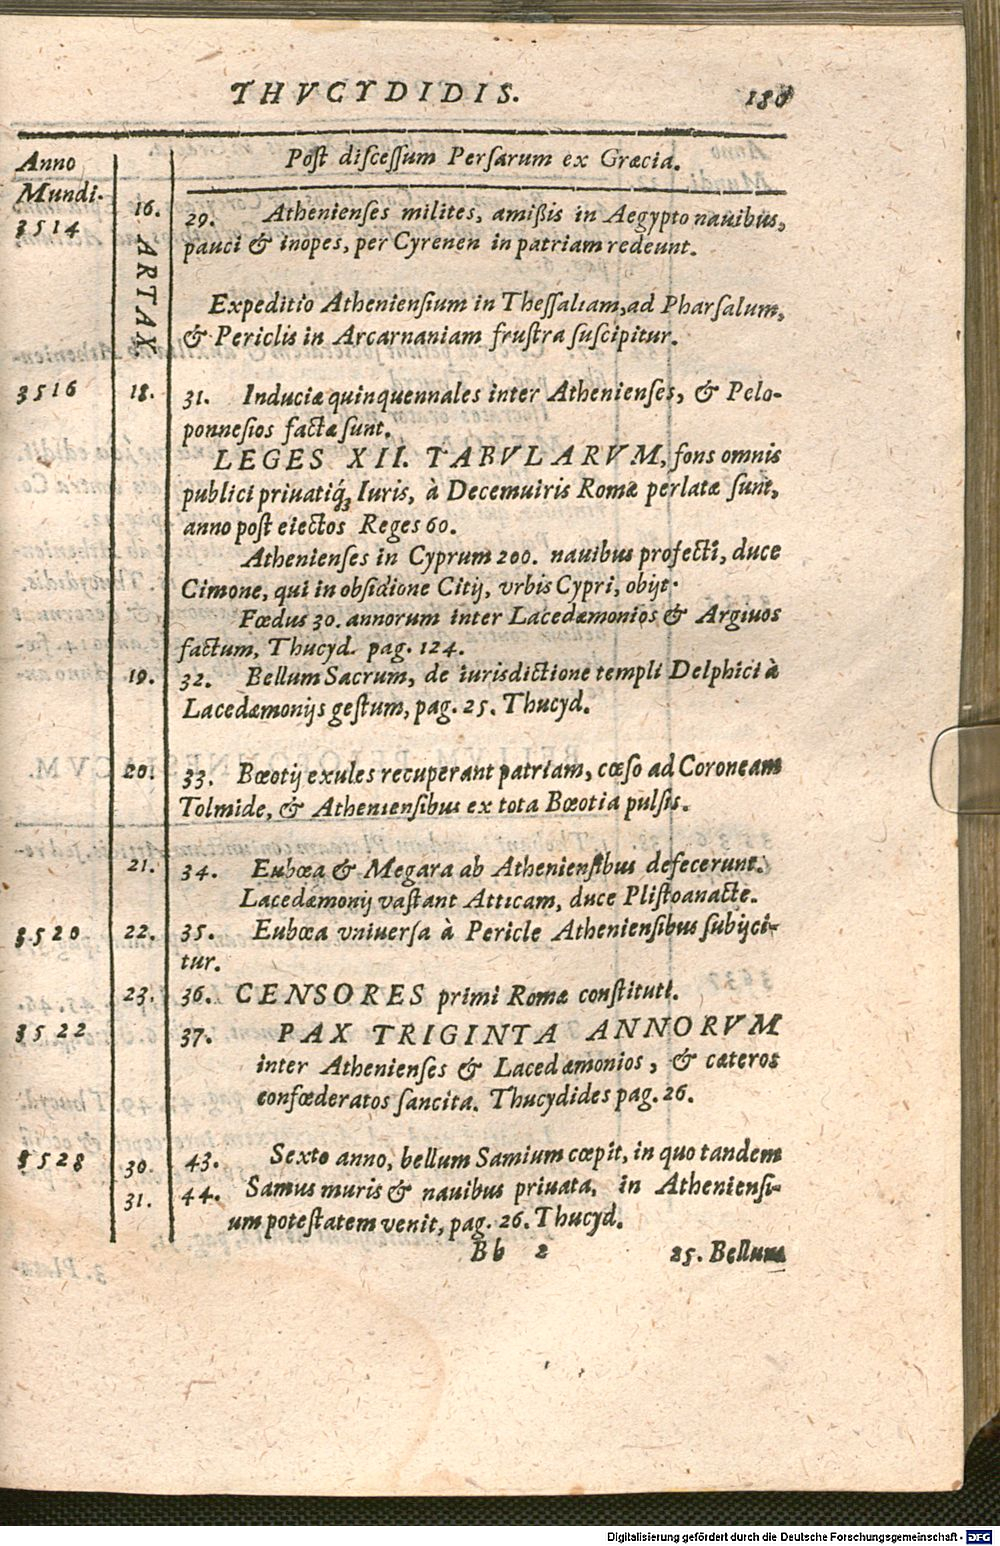 THVCYDIDIS. 180
Anno Post discessum Persarum ex Græcia.
Mundi.
3514 16. 29. Athenienses milites, amißis in Aegypto nauibus,
pauci & inopes, per Cyrenen in patriam redeunt.
ARTAX.
Expeditio Atheniensium in Thessaliam, ad Pharsalum,
& Periclis in Arcarnaniam frustra suscipitur.
3516 18. 31. Induciæ quinquennales inter Athenienses, & Pelo-
ponnesios factæ sunt.
LEGES XII. TABVLARVM, fons omnis
publici priuatiq́; Iuris, à Decemuiris Romæ perlatæ sunt,
anno post eiectos Reges 60.
Athenienses in Cyprum 200. nauibus profecti, duce
Cimone, qui in obsidione Citij, vrbis Cypri, obijt.
Fœdus 30. annorum inter Lacedæmonios & Argiuos
factum, Thucyd. pag. 124.
19. 32. Bellum Sacrum, de iurisdictione templi Delphici à
Lacedæmonijs gestum, pag. 25. Thucyd.
20. 33. Bœotij exules recuperant patriam, cæso ad Coroneam
Tolmide, & Atheniensibus ex tota Bœotia pulsis.
21. 34. Eubœa & Megara ab Atheniensibus defecerunt.
Lacedæmonij vastant Atticam, duce Plistoanacte.
3520 22. 35. Eubœa vniuersa à Pericle Atheniensibus subijci-
tur.
23. 36. CENSORES primi Romæ constituti.
3522 37. PAX TRIGINTA ANNORVM
inter Athenienses & Lacedæmonios, & cæteros
confœderatos sancita. Thucydides pag. 26.
3528 30. 43. Sexto anno, bellum Samium cœpit, in quo tandem
31. 44. Samus muris & nauibus priuata, in Atheniensi-
um potestatem venit, pag. 26. Thucyd.
Bb 2 25. Bellum
Digitalisierung gefördert durch die Deutsche Forschungsgemeinschaft - DFG